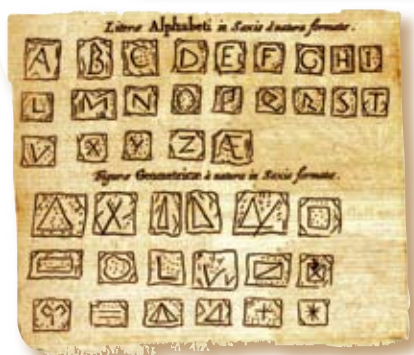 Literæ Alphabeti in Saxis à natura formatæ.
A B C D E F G H I
L M N O P Q R S T
V X Y Z Æ
Figuræ Geometricæ à natura in Saxis formatæ.